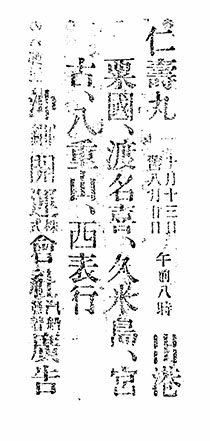 仁壽丸 十月十三日 舊八月廿日 午前八時 出港
粟國、渡名喜、久米島、宮
古、八重山、西表行
沖繩開運株式會社 廣告